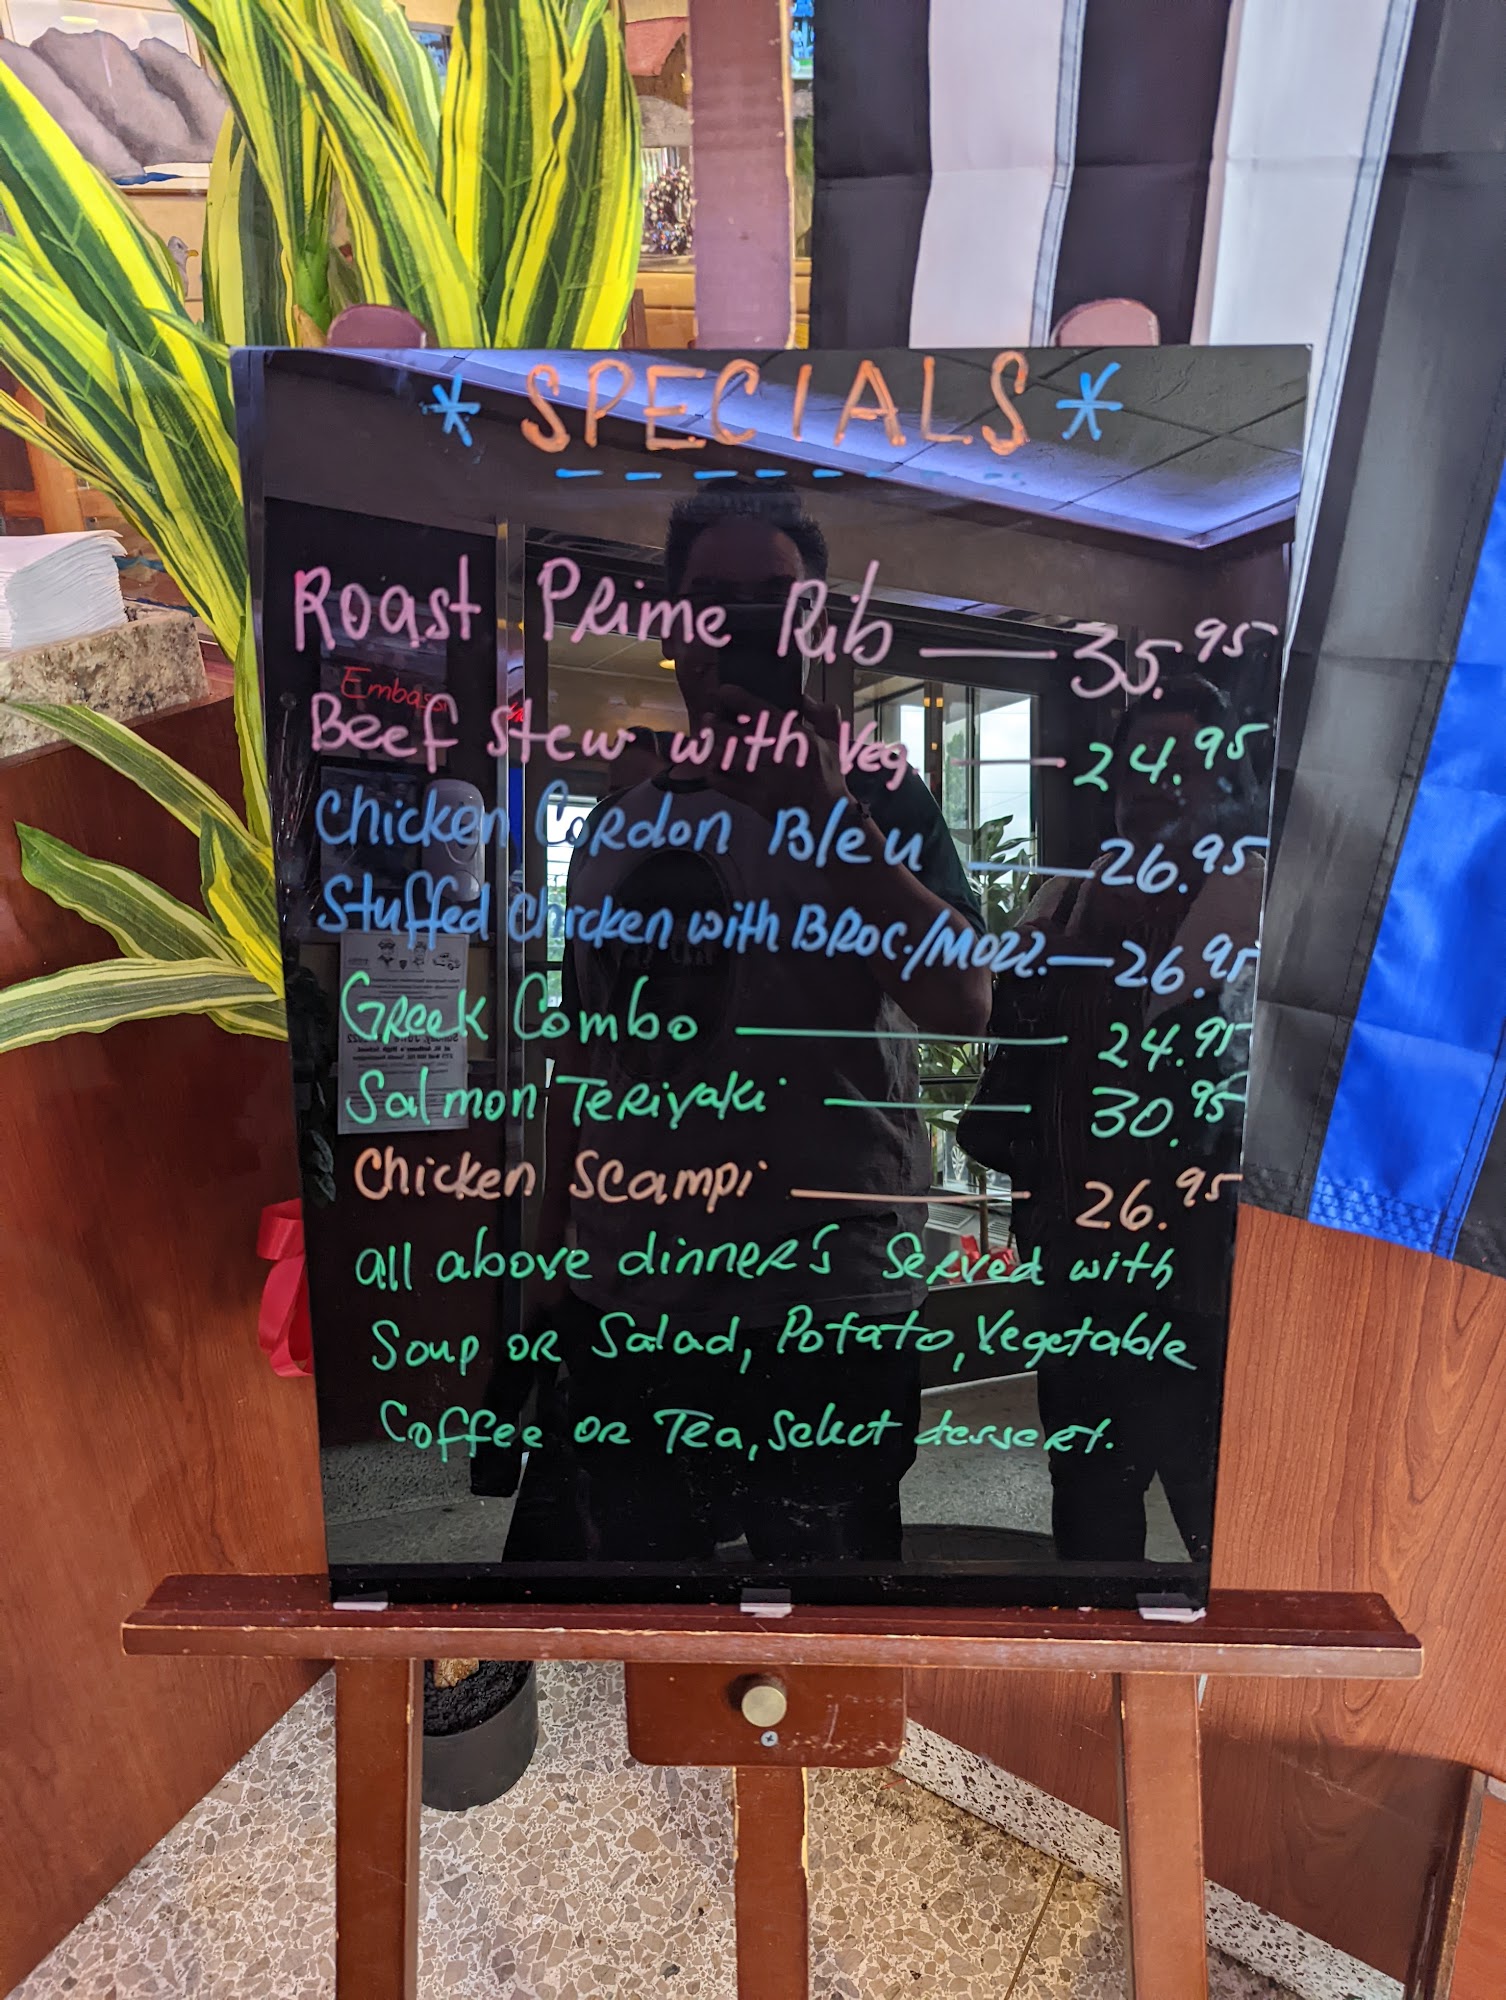 * SPECIALS *
Roast Prime Rib — 35.95
Beef Stew with Veg. — 24.95
Chicken Cordon Bleu — 26.95
Stuffed Chicken with BROC./MOZZ. — 26.95
Greek Combo — 24.95
Salmon Teriyaki — 30.95
Chicken Scampi — 26.95
all above dinner's Served with
Soup or Salad, Potato, Vegetable
Coffee or Tea, Select dessert.